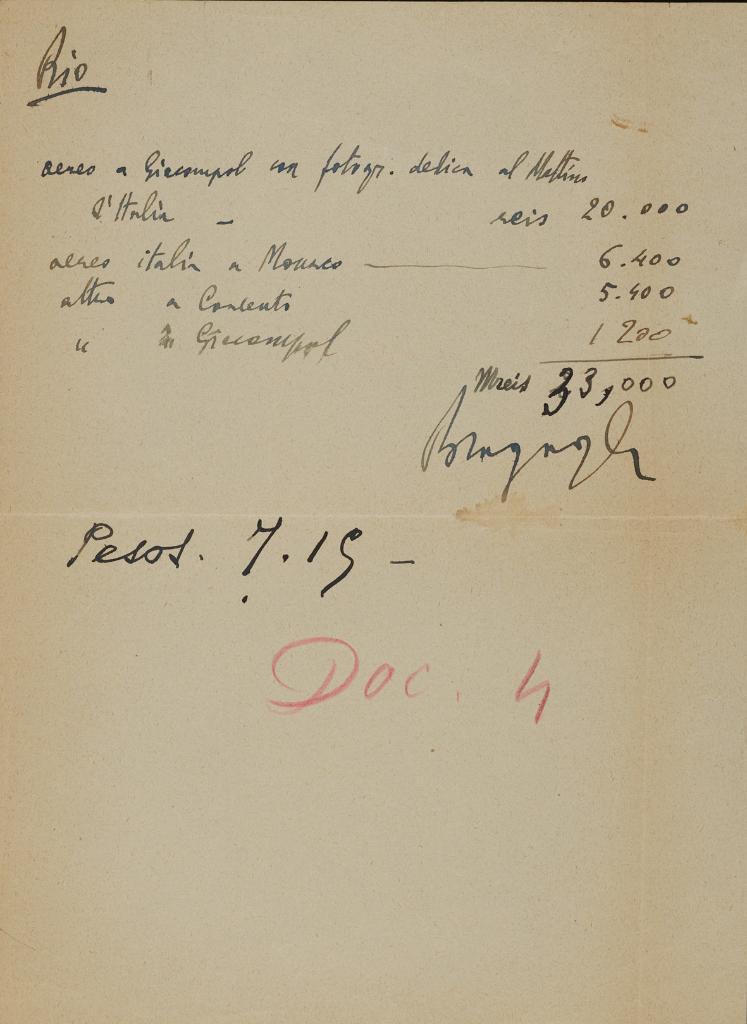 Rio
aereo a Giacompol con fotogr. dedica al Mattino
d'Italia - reis 20.000
aereo italia a Monaco 6.400
altro a 5.400
" a Giacompol 1200
Mreis 33,000
Bragaglia
Pesos. 7.15 -
Doc. 4